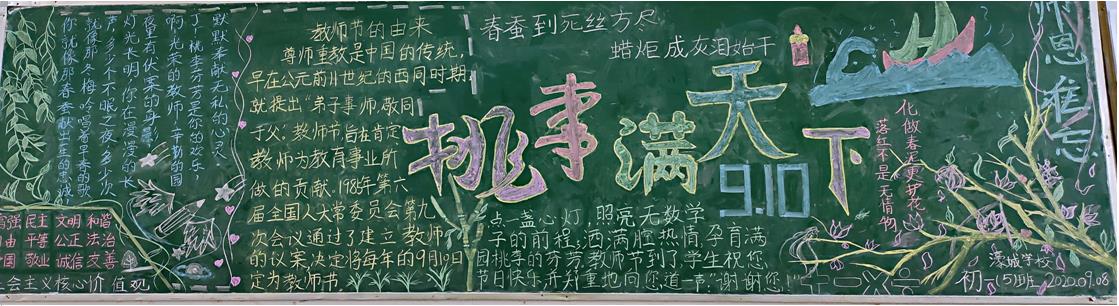 默默奉献无私的心灵
丁桃李芬芳是你的欢乐
啊光荣的教师辛勤的园
夜里有伏案的身影
灯光卡明你在漫漫的长
声多少个不眠之夜多少次
就像那冬梅吟唱着早春的歌
你就像那春蚕献出全的忠诚
富强 民主 文明 和谐
由 平等 公正 法治
国 敬业 诚信 友善
社会主义核心价值观
教师节的由来
尊师重教是中国的传统,
早在公元前11世纪的西同时期,
就提出"弟子事师,敬同
于父;教师节旨在肯定
教师为教育事业所
做的贡献.1985年第六
届全国人大常委员会第九
次会议通过了建立教师
的议案决定将每年的9月10日
定为教师节.
春蚕到死丝方尽
蜡炬成灰泪始干
挑事满天下
9.10
点一盏心灯,照亮无数学
子的前程;洒满腔热情,孕育满
园桃李的芬芳教师节到了,学生祝您
节日快乐并郑重地向您道一声"谢谢您!"
化做春泥更护花
落红不是无情物
师恩难忘
濛城学校
初一(5)班 2020.09.08